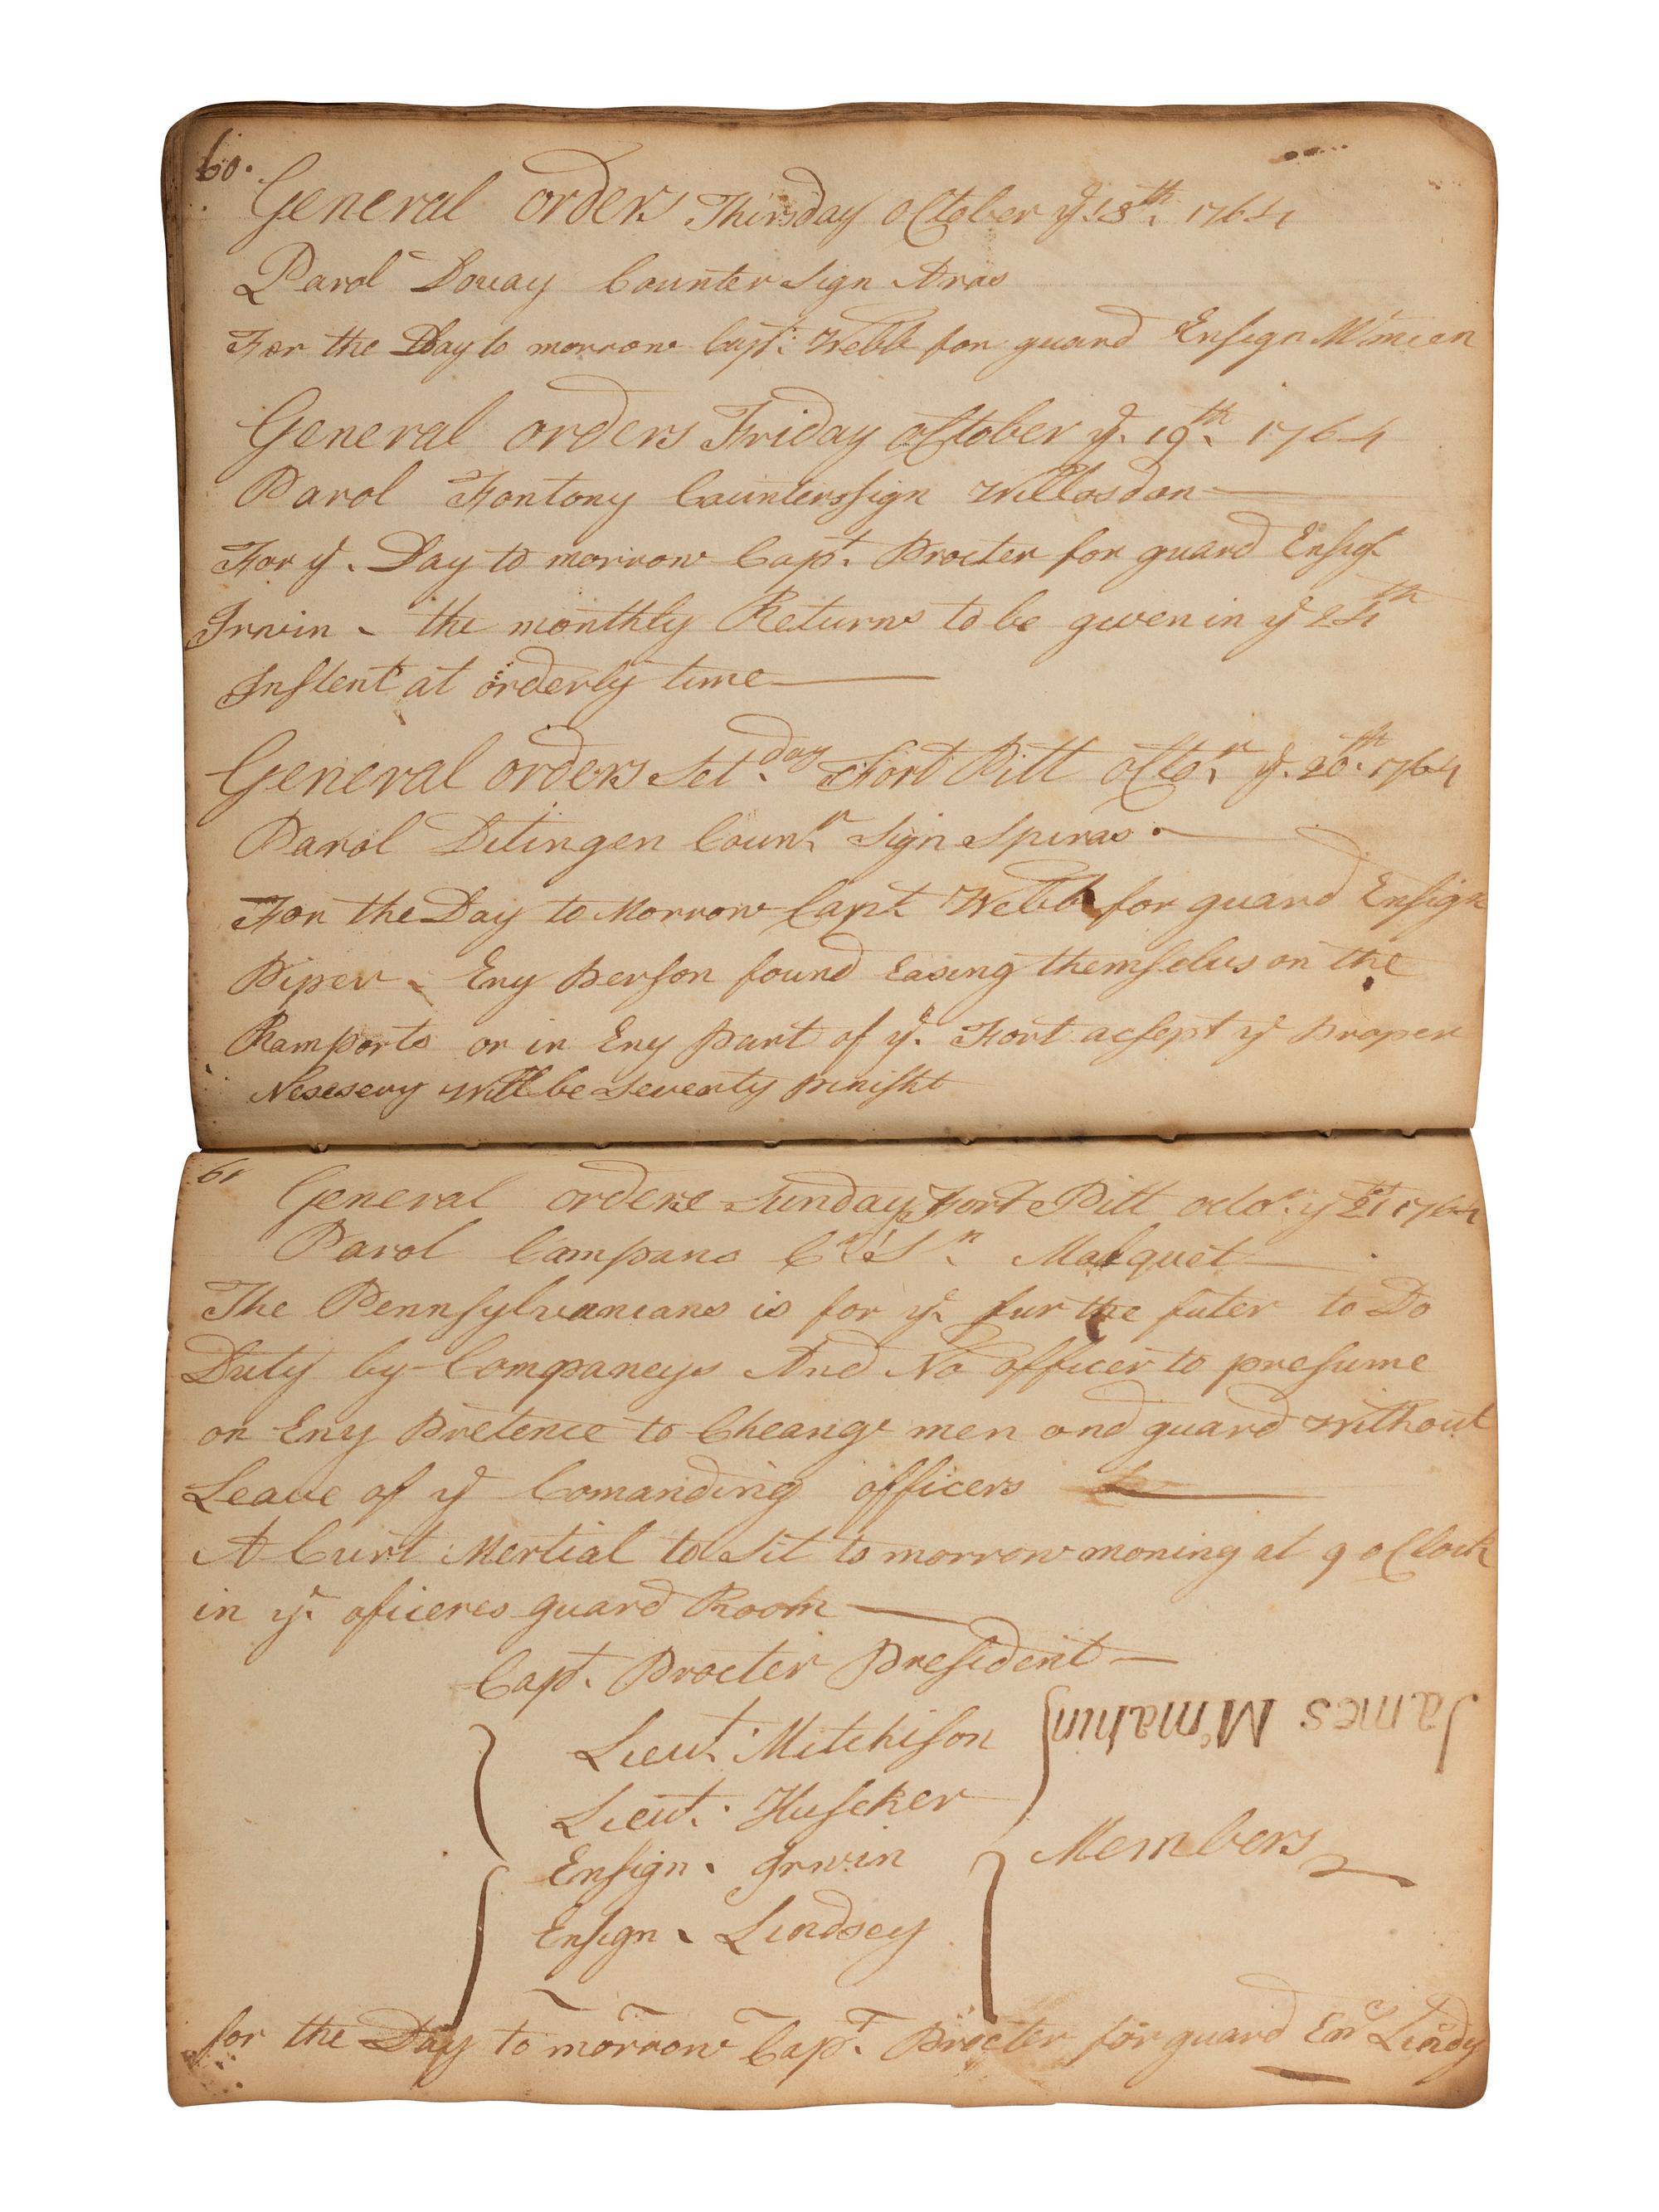 60.
General orders Thirsday October yͤ. 18th. 1764
Parol Douay Counter Sign Aras
For the Day to morrow Capt: Webb for guard Ensign Mcmeen
General orders Friday October yͤ. 19th. 1764
Parol Fontony Countersign Willosdon
For yͤ. Day to morrow Capt. Procter for guard Ensign
Irwin - the monthly Returns to be given in yͤ 24th
Instent at orderly time
General orders Setday. Fort Pitt Octor. yͤ. 20th. 1764
Parol Ditingen Counr. Sign Spiras.
For the Day to Morrow Capt. Webb for guard Ensign
Piper - Eny Person found Easing themselvs on the
Ramports or in Eny Part of yͤ. Fort acsept yͤ Proper
Nesesery Will be Severty Punisht
61
General orders Sunday Fort Pitt octor. yͤ 21st 1764
Parol Campans Cr. Sn. Malquet
The Pennsylvanians is for yͤ fur the futer to Do
Duty by Companeys And No officer to presume
on Eny Pretence to Cheange men and guard without
Leave of yͤ Comanding officers
A Curt Mertial to Sit to morrow moning at 9 o Clock
in yͤ. oficeres guard Room
Capt. Procter President
Lieut. Mitchison
James Mcmahin
Lieut. Huseker
Ensign. Irwin
Members
Ensign. Lindsey
for the Day to morrow Capt. Procter for guard Enn Lindy